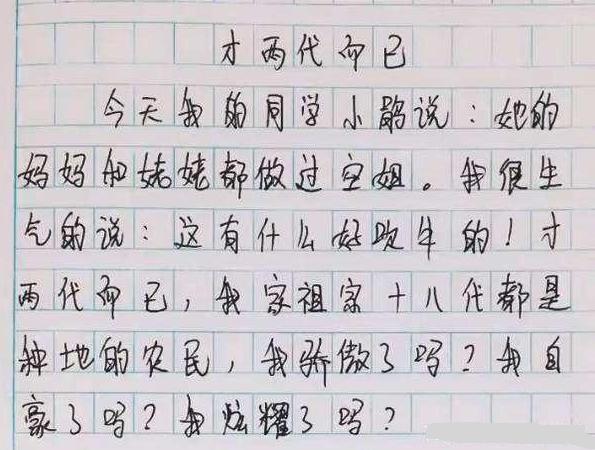 才两代而已
今天我的同学小鹃说：她的
妈妈和姥姥都做过空姐。我很生
气的说：这有什么好吹牛的！才
两代而已，我家祖宗十八代都是
种地的农民，我骄傲了吗？我自
豪了吗？我炫耀了吗？